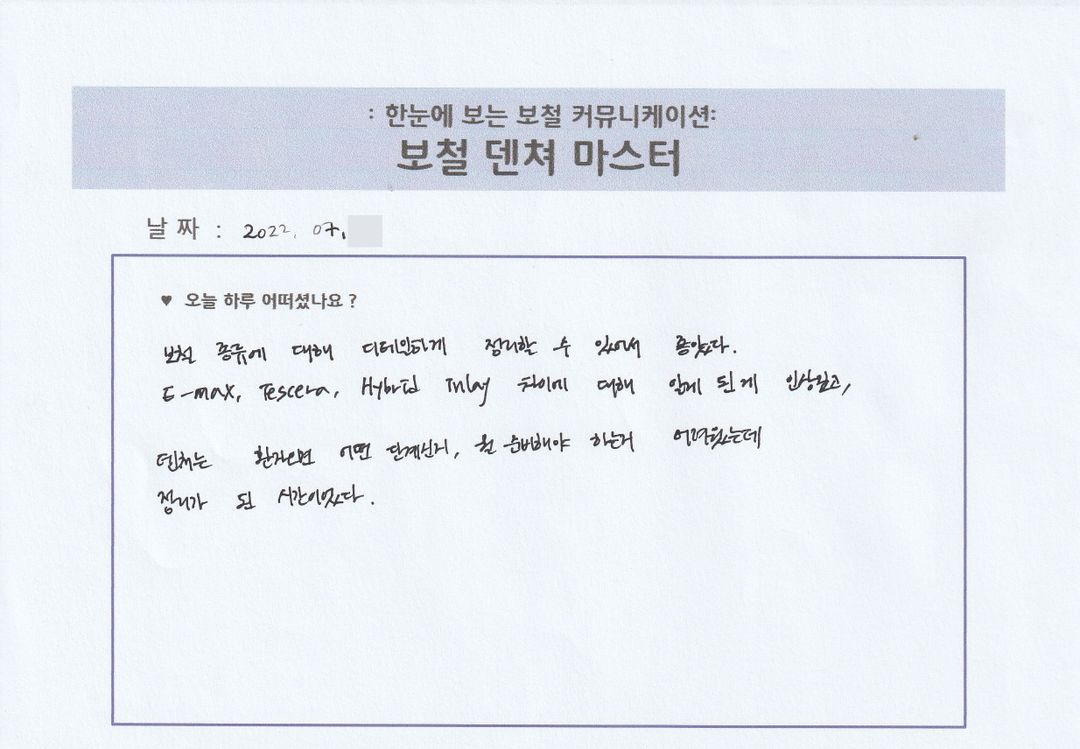 : 한눈에 보는 보철 커뮤니케이션:
보철 덴쳐 마스터
날 짜 : 2022. 07.
♥ 오늘 하루 어떠셨나요 ?
보철 종류에 대해 디테일하게 정리할 수 있어서 좋았다.
E-max, Tescera, Hybrid Inlay 차이에 대해 알게 된게 인상깊고,
덴쳐는 환자오면 어떤 단계인지, 뭘 준비해야 하는거 어려웠는데
정리가 된 시간이었다.